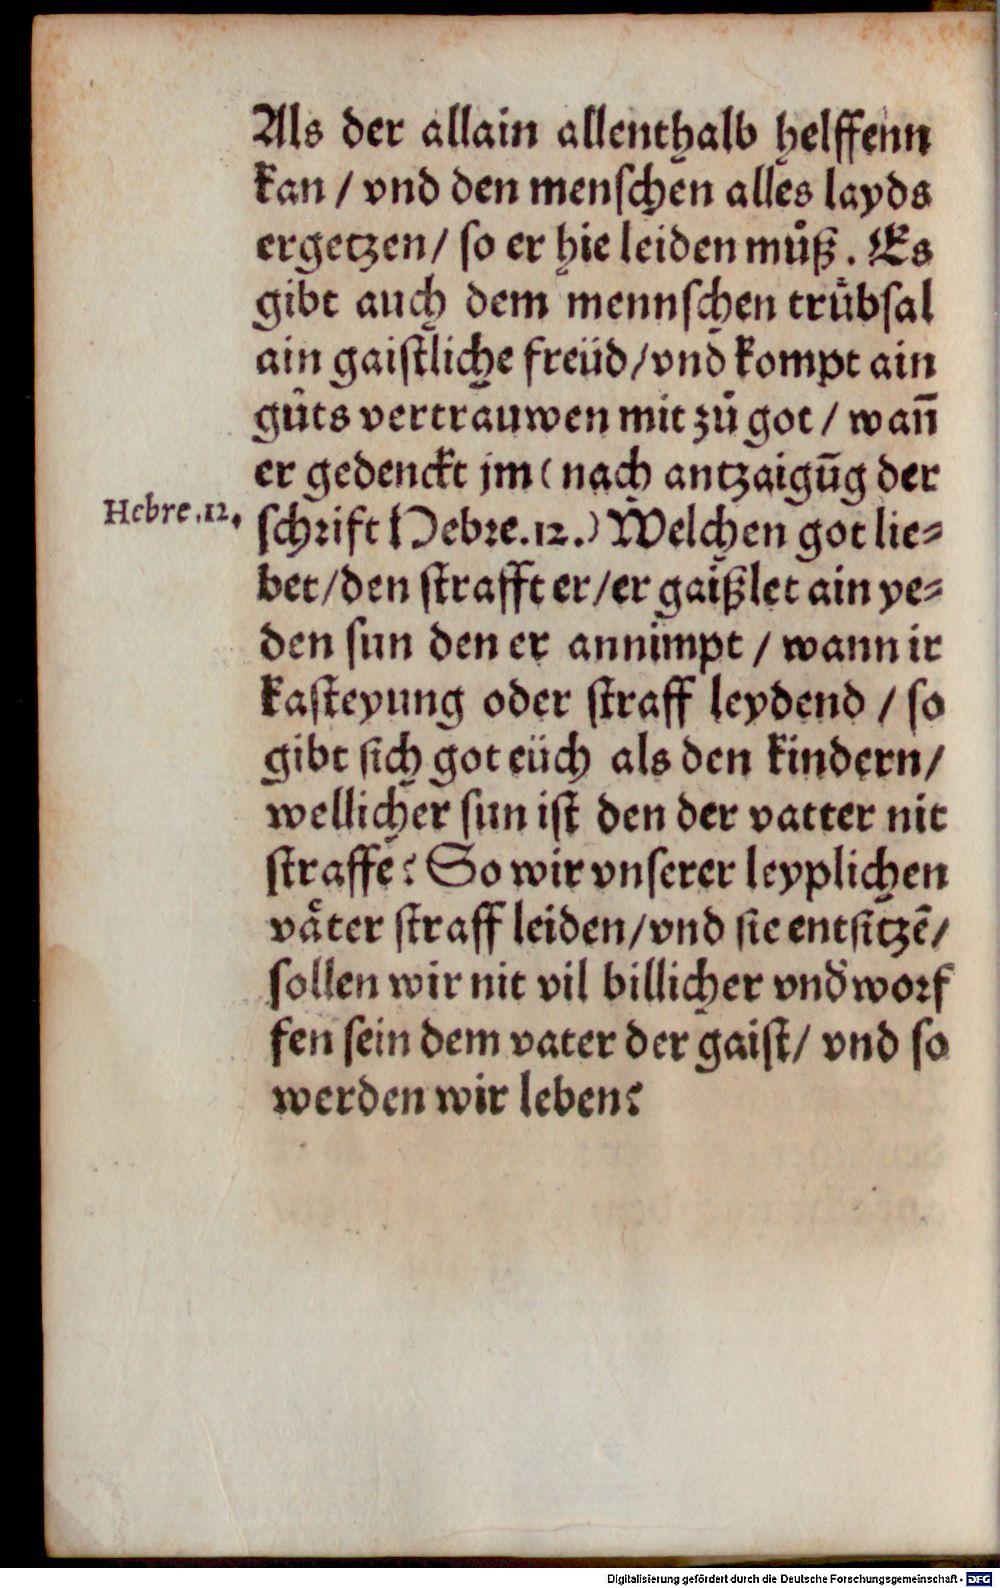 Als der allain allenthalb helffenn
kan / vnd den menschen alles layds
ergetzen / so er hie leiden muͦß. Es
gibt auch dem mennschen truͤbsal
ain gaistliche freüd / vnd kompt ain
guͦts vertrauwen mit zuͦ got / wañ
er gedenckt jm (nach antzaigūg der
Hebre.12.
schrift Hebre.12.) Welchen got lie=
bet / den strafft er / er gaißlet ain ye=
den sun den er annimpt / wann ir
kasteyung oder straff leydend / so
gibt sich got eüch als den kindern /
wellicher sun ist den der vatter nit
straffe? So wir vnserer leyplichen
vaͤter straff leiden / vnd sie entsitzē /
sollen wir nit vil billicher vnd'worf
fen sein dem vater der gaist / vnd so
werden wir leben?
Digitalisierung gefördert durch die Deutsche Forschungsgemeinschaft - DFG